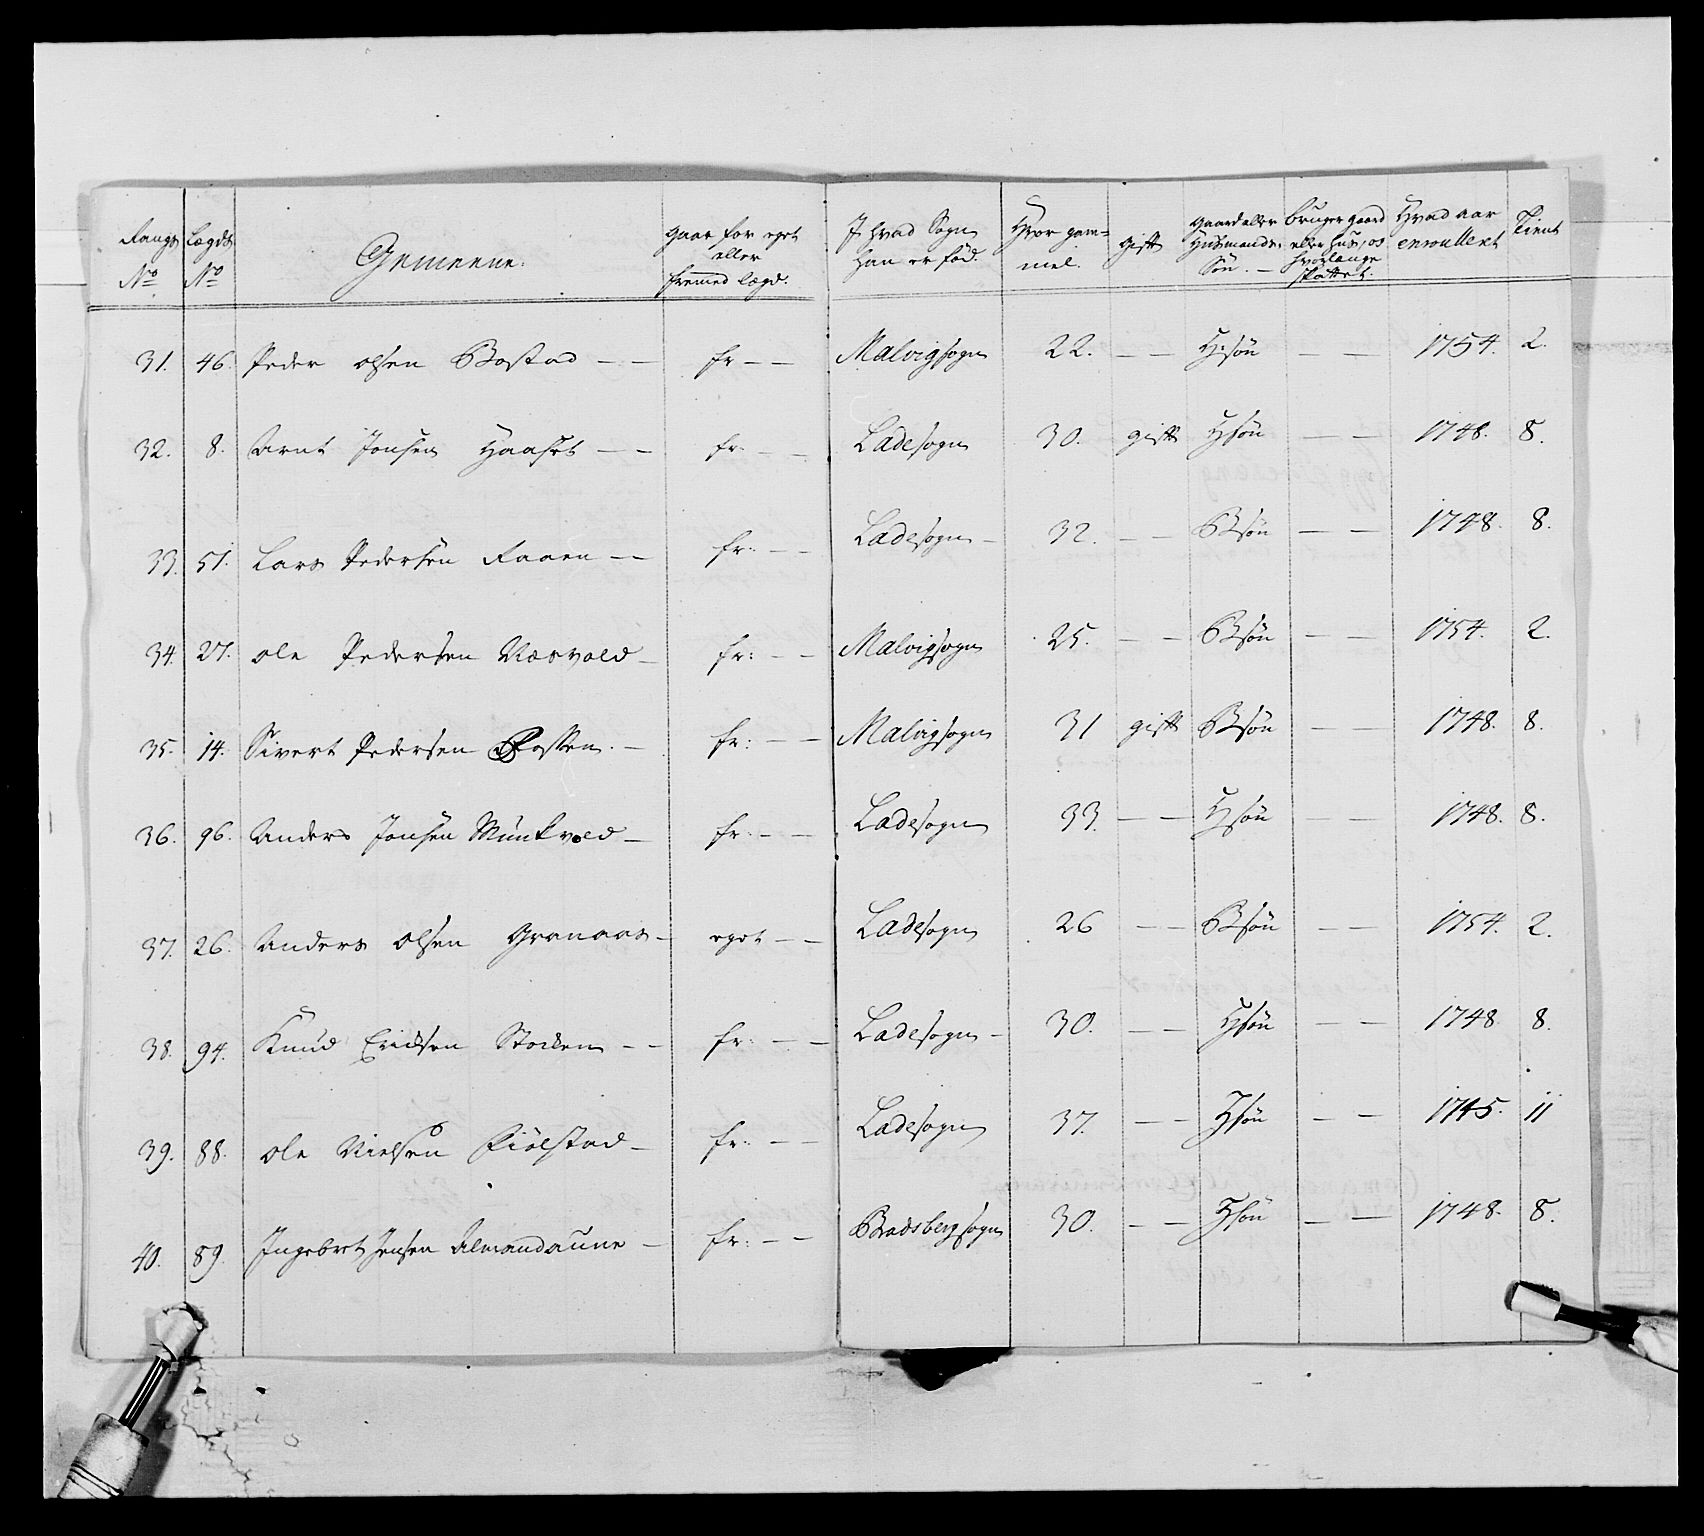 Rangs No
Lægds No
Gemeene.
Gaar for eget eller fremed lægd.
J hvad Sogn han er föd.
Hvor gam=mel.
gift
Gaard eller Huusmands Sön. —
bruger gaard eller huus, og hvorlænge skattet.
Hvad aar enroulleret
Tient
31. 46. Peder olsen Bostad — — fr — — Malvigsogn 22. — — Hsön — — 1754. 2.
32. 8. Arnt Jonsen — — fr. — — Ladesogn 30. gift Hsön — — 1748. 8.
33. 51. Lars Pedersen Raaen — — fr: — — Ladesogn — 32. — — Bsön — — 1748. 8.
34. 27. ole Pedersen Næsvold — fr: — — Malvigsogn 25. — — Bsön — — 1754. 2.
35. 14. Sivert Pedersen — fr: — — Malvigsogn 31 gift Bsön — — 1748. 8.
36. 96. Anders Jonsen Munkvold — fr: — — Ladesogn 33. — — Hsön — — 1748. 8.
37. 26. Anders olsen Granaas — eget — — Ladesogn 26 — — Bsön — — 1754. 2.
38. 94. Knud Ericksen Stocken — — fr: — — Ladesogn — 30. — — Hsön — — 1748. 8.
39. 88. ole Nielsen Fiölstad — fr: — — Ladesogn 37. — — Hsön — — 1745. 11
40. 89. Ingebret Jensen Almandaune — fr: — — Bradsbergsogn 30. — — Hsön — — 1748. 8.